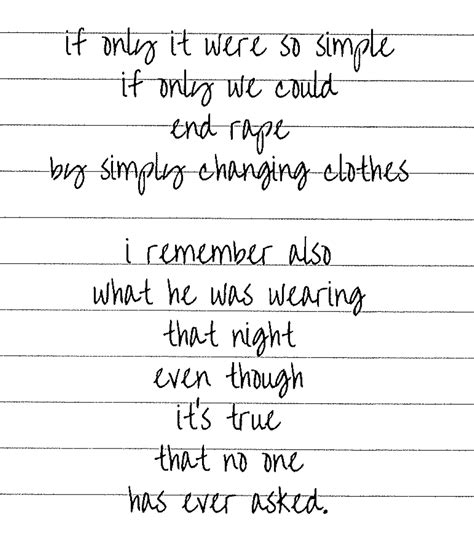 if only it were so simple
if only we could
end rape
by simply changing clothes
i remember also
what he was wearing
that night
even though
it's true
that no one
has ever asked.